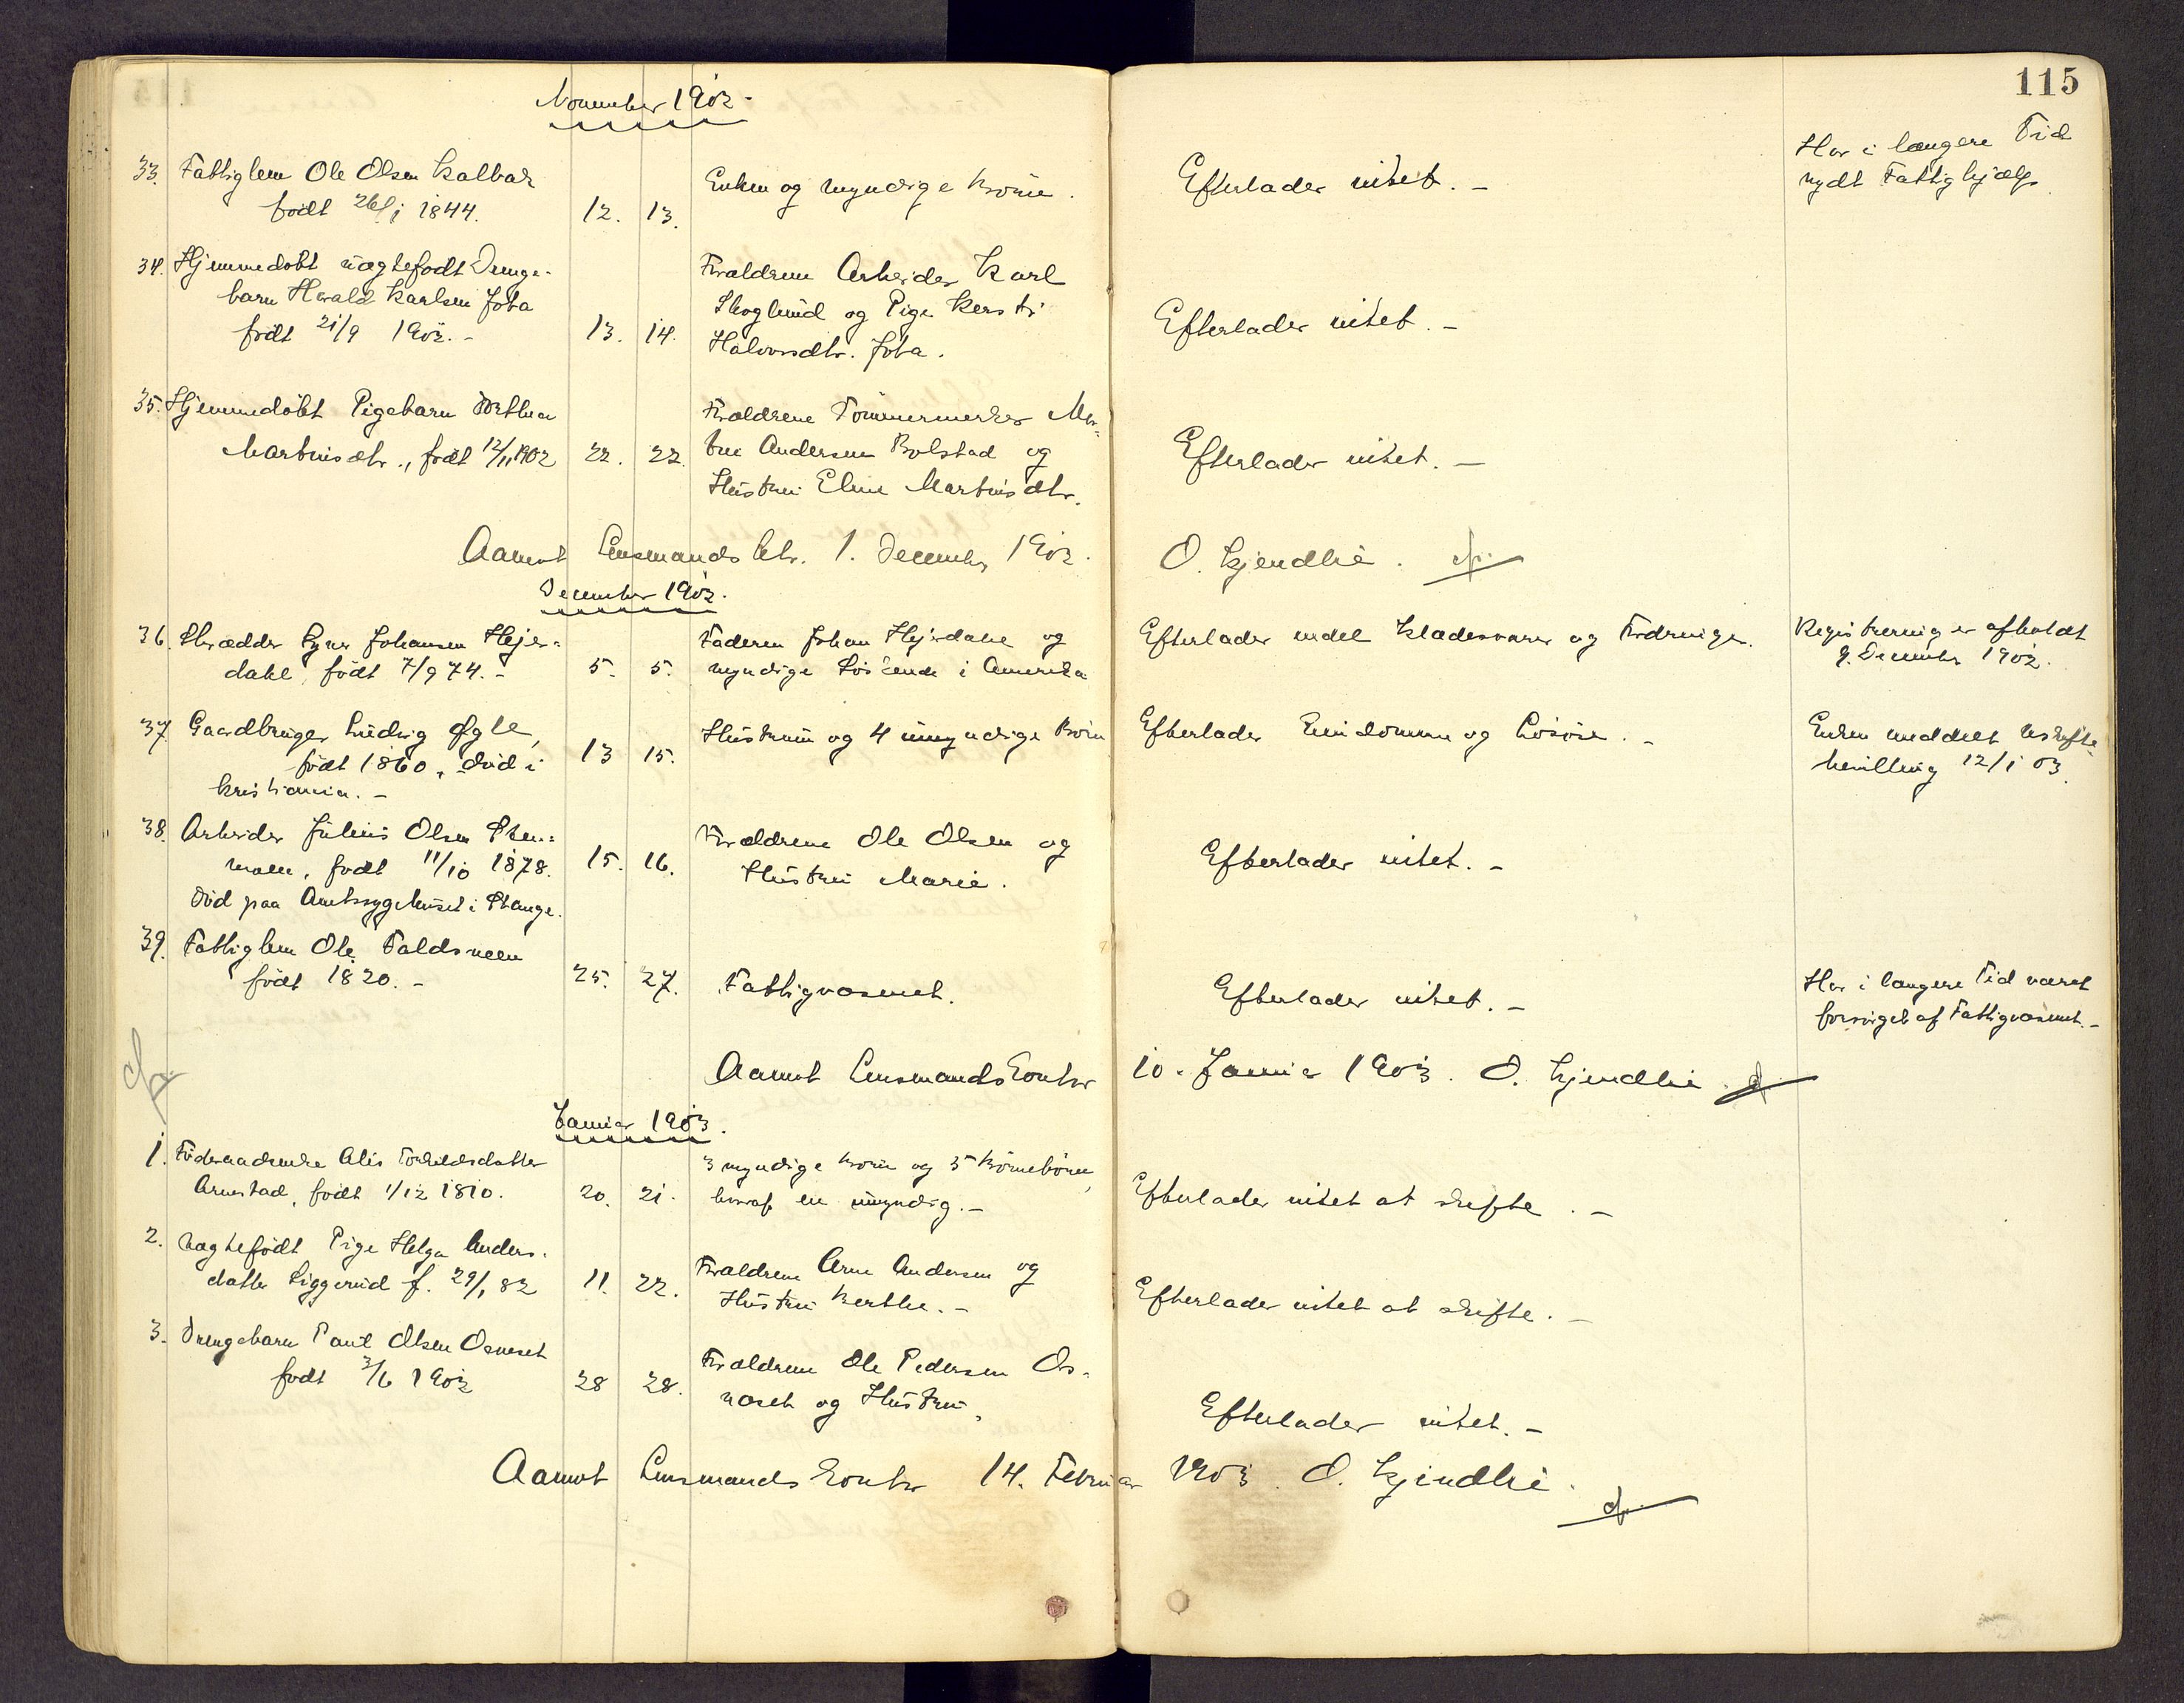 115
November 1902.
33. Fattiglem Ole Olsen Kalbak
født 26/1 1844. 12. 13. Enken og myndige Børn. Efterlader intet. -
Har i længere Tid
nydt Fattighjælp
34. Hjemmedøbt uægtefødt Drenge-
barn Harald Karlsen Jota
født 21/9 1902. - 13. 14. Forældrene Arbeider Karl
Skoglund og Pige Kersti
Halvorsdtr. Jota. Efterlader intet. -
35. Hjemmedøbt Pigebarn Dorthea
Martinsdtr., født 12/11 1902 22. 22. Forældrene Tømmermerker Mar-
tin Andersen Bolstad og
Hustru Eline Martinsdtr. Efterlader intet. -
Aamot Lensmandsktr. 1. December 1902. O. Kjendlie.
December 1902.
36. Skrædder Johansen Hejer-
dahl, født 7/9 74. - 5. 5. Faderen Johan Hejerdahl og
myndige Søskende i Amerika Efterlader endel Klædesvarer og Fordringer. Registrering er afholdt
9. December 1902.
37. Gaardbruger Ludvig Øgle,
født 1860, død i
Kristiania. - 13 15. Hustruen og 4 umyndige Børn Efterlader Eiendomme og Løsøre. - Enken meddelt Uskifte-
bevilling 12/1 03.
38. Arbeider Julius Olsen Sten-
moen, født 11/10 1878.
Død paa Amtssygehuset i Stange. 15. 16. Forældrene Ole Olsen og
Hustru Marie. Efterlader intet. -
39. Fattiglem Ole Faldsveen
født 1820. - 25. 27. Fattigvæsenet. Efterlader intet. - Har i længere Tid været
forsørget af Fattigvæsenet. -
Aamot Lensmandskontor 10. Januar 1903. O. Kjendlie.
Januar 1903.
1. Føderaadsenke Alis Torkildsdatter
Arnestad, født 1/12 1810. 20. 21. 3 myndige Børn og 5 Børnebørn,
hvoraf en umyndig. - Efterlader intet at skifte. -
2. Uægtefødt Pige Helga Anders-
datter Liggerud f. 29/1 82 11. 22. Forældrene Arne Andersen og
Hustru Berthe. - Efterlader intet at skifte. -
3. Drengebarn Paul Olsen Osneset
født 3/6 1902 28 28. Forældrene Ole Pedersen Os-
næset og Hustru, Efterlader intet. -
Aamot Lensmandskontor 14. Februar 1903. O. Kjendlie.